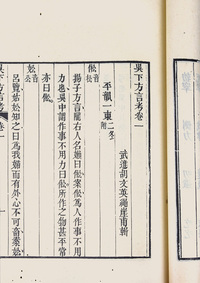 吳下方言考卷一
武進胡文英繩崖甫輯
平韻一東 二冬附
倯 音松
揚子方言隴右人名嬾曰倯案倯爲人作事不用
力也吳中謂作事不用力曰倯所作之物甚平常
亦曰倯
妐 音公
呂覽姑妐知之曰爲我婦而有外心不可畜案妐
吳下方言考 卷一